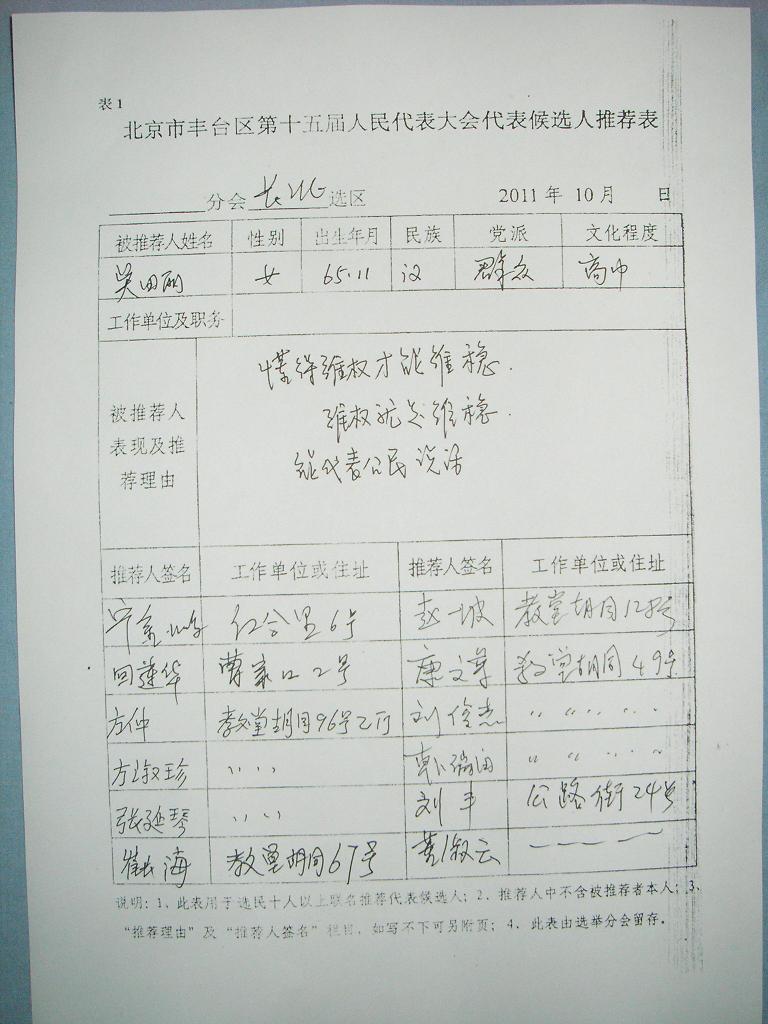 表1
北京市丰台区第十五届人民代表大会代表候选人推荐表
分会 长北 选区 2011 年 10 月 日
被推荐人姓名 性别 出生年月 民族 党派 文化程度
吴田丽 女 65.11 汉 群众 高中
工作单位及职务
被推荐人
表现及推
荐理由
懂得维权才能维稳.
维权就是维稳.
能代表公民说话
推荐人签名 工作单位或住址 推荐人签名 工作单位或住址
6号 赵一坡 教堂胡同128号
回莲华 曹家口2号 康文 教堂胡同49号
方仲 教堂胡同96号 刘俊杰 〃 〃 〃 〃
方淑珍 〃 〃 韩瑞 〃 〃 〃 〃
张延琴 〃 〃 刘丰 公路街24号
崔长海 教堂胡同67号 黄淑云
说明：1、此表用于选民十人以上联名推荐代表候选人；2、推荐人中不含被推荐者本人；3、
“推荐理由”及“推荐人签名”栏目，如写不下可另附页；4、此表由选举分会留存。